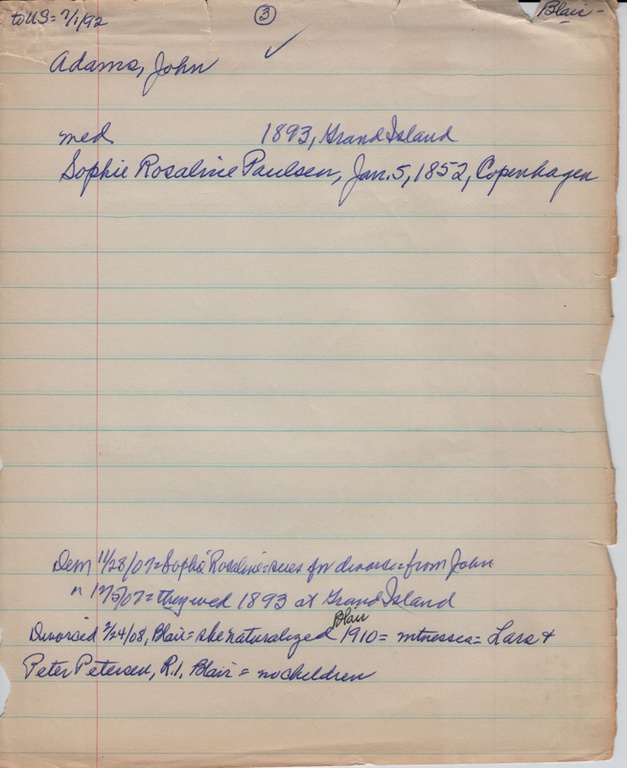 to US = 7/1/92 ③ Blair -
Adams, John
med 1893, Grand Island
Sophie Rosaline Paulsen, Jan. 5, 1852, Copenhagen
Dem 11/28/07 = Sophie "Rosaline" = sues for divorse = from John
" 12/5/07 = they wed 1893 at Grand Island
Blair
Divorced 2/24/08, Blair = she naturalized 1910 = witnesses = Lars +
Peter Petersen, R.1, Blair = no children